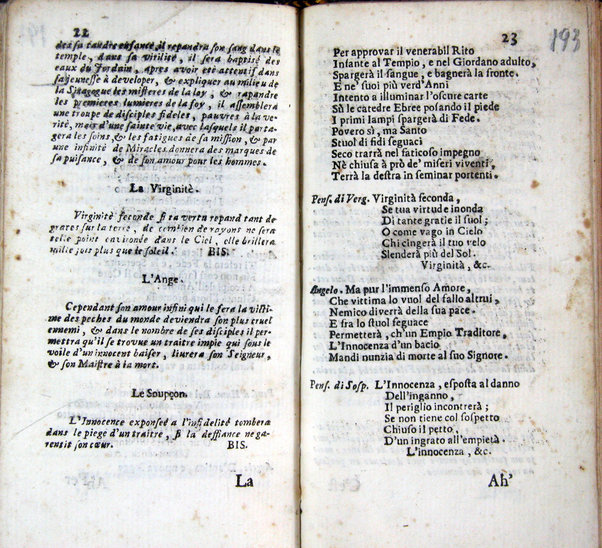 22
des sa tandre enfance, il repandra son sang dans le
temple, dans sa virilité, il sera baptisé des
eaux du Jordain, apres avoir eté attentif dans
sa jeunesse à developer, & expliquer au milieu de
la Sinagogue les misteres de la loy, & rapandre
les premieres lumieres de la foy, il assemblera
une troupe de disciples fideles, pauvres à la ve-
rité, mais d'une sainte vie, avec lasquels il parta-
gera les soins, & les fatigues de sa mission, & par
une infinité de Miracles donnera des marques de
sa puisance, & de son amour pour les hommes.
La Virginitè.
Virginité feconde si ta vertu repand tant de
graces sur la terre, de combien de rayons ne sera
telle point environde dans le Ciel, elle brillera
mille fois plus que le soleil. BIS.
L'Ange.
Cependant son amour infini qui le fera la victi-
me des peches du monde deviendra son plus cruel
ennemi, & dans le nombre de ses disciples il per-
mettra qu'il se trouve un traitre impie qui sous le
voile d'un innocent baiser, livrera son Seigneur,
& son Maistre à la mort.
Le Soupçon.
L'Innocence exponseé a l'infidelité tombera
dans le piege d'un traitre, si la deffiance ne ga-
rentit son cœur. BIS.
La
23
193
Per approvar il venerabil Rito
Infante al Tempio, e nel Giordano adulto,
Spargerà il sangue, e bagnerà la fronte.
E ne' suoi più verd'Anni
Intento a illuminar l'oscure carte
Sù le catedre Ebree posando il piede
I primi lampi spargerà di Fede.
Povero sì, ma Santo
Stuol di fidi seguaci
Seco trarrà nel faticoso impegno
Nè chiusa à prò de' miseri viventi,
Terrà la destra in seminar portenti.
Pens. di Verg. Virginità feconda,
Se tua virtude inonda
Di tante gratie il suol;
O come vago in Cielo
Chi cingerà il tuo velo
Slenderà più del Sol.
Virginità, &c.
Angelo. Ma pur l'immenso Amore,
Che vittima lo vuol del fallo altrui,
Nemico diverrà della sua pace.
E fra lo stuol seguace
Permetterà, ch'un Empio Traditore,
L'Innocenza d'un bacio
Mandi nunzia di morte al suo Signore.
Pens. di Sosp. L'Innocenza, esposta al danno
Dell'inganno,
Il periglio incontrerà;
Se non tiene col sospetto
Chiuso il petto,
D'un ingrato all'empietà.
L'innocenza, &c.
Ah'